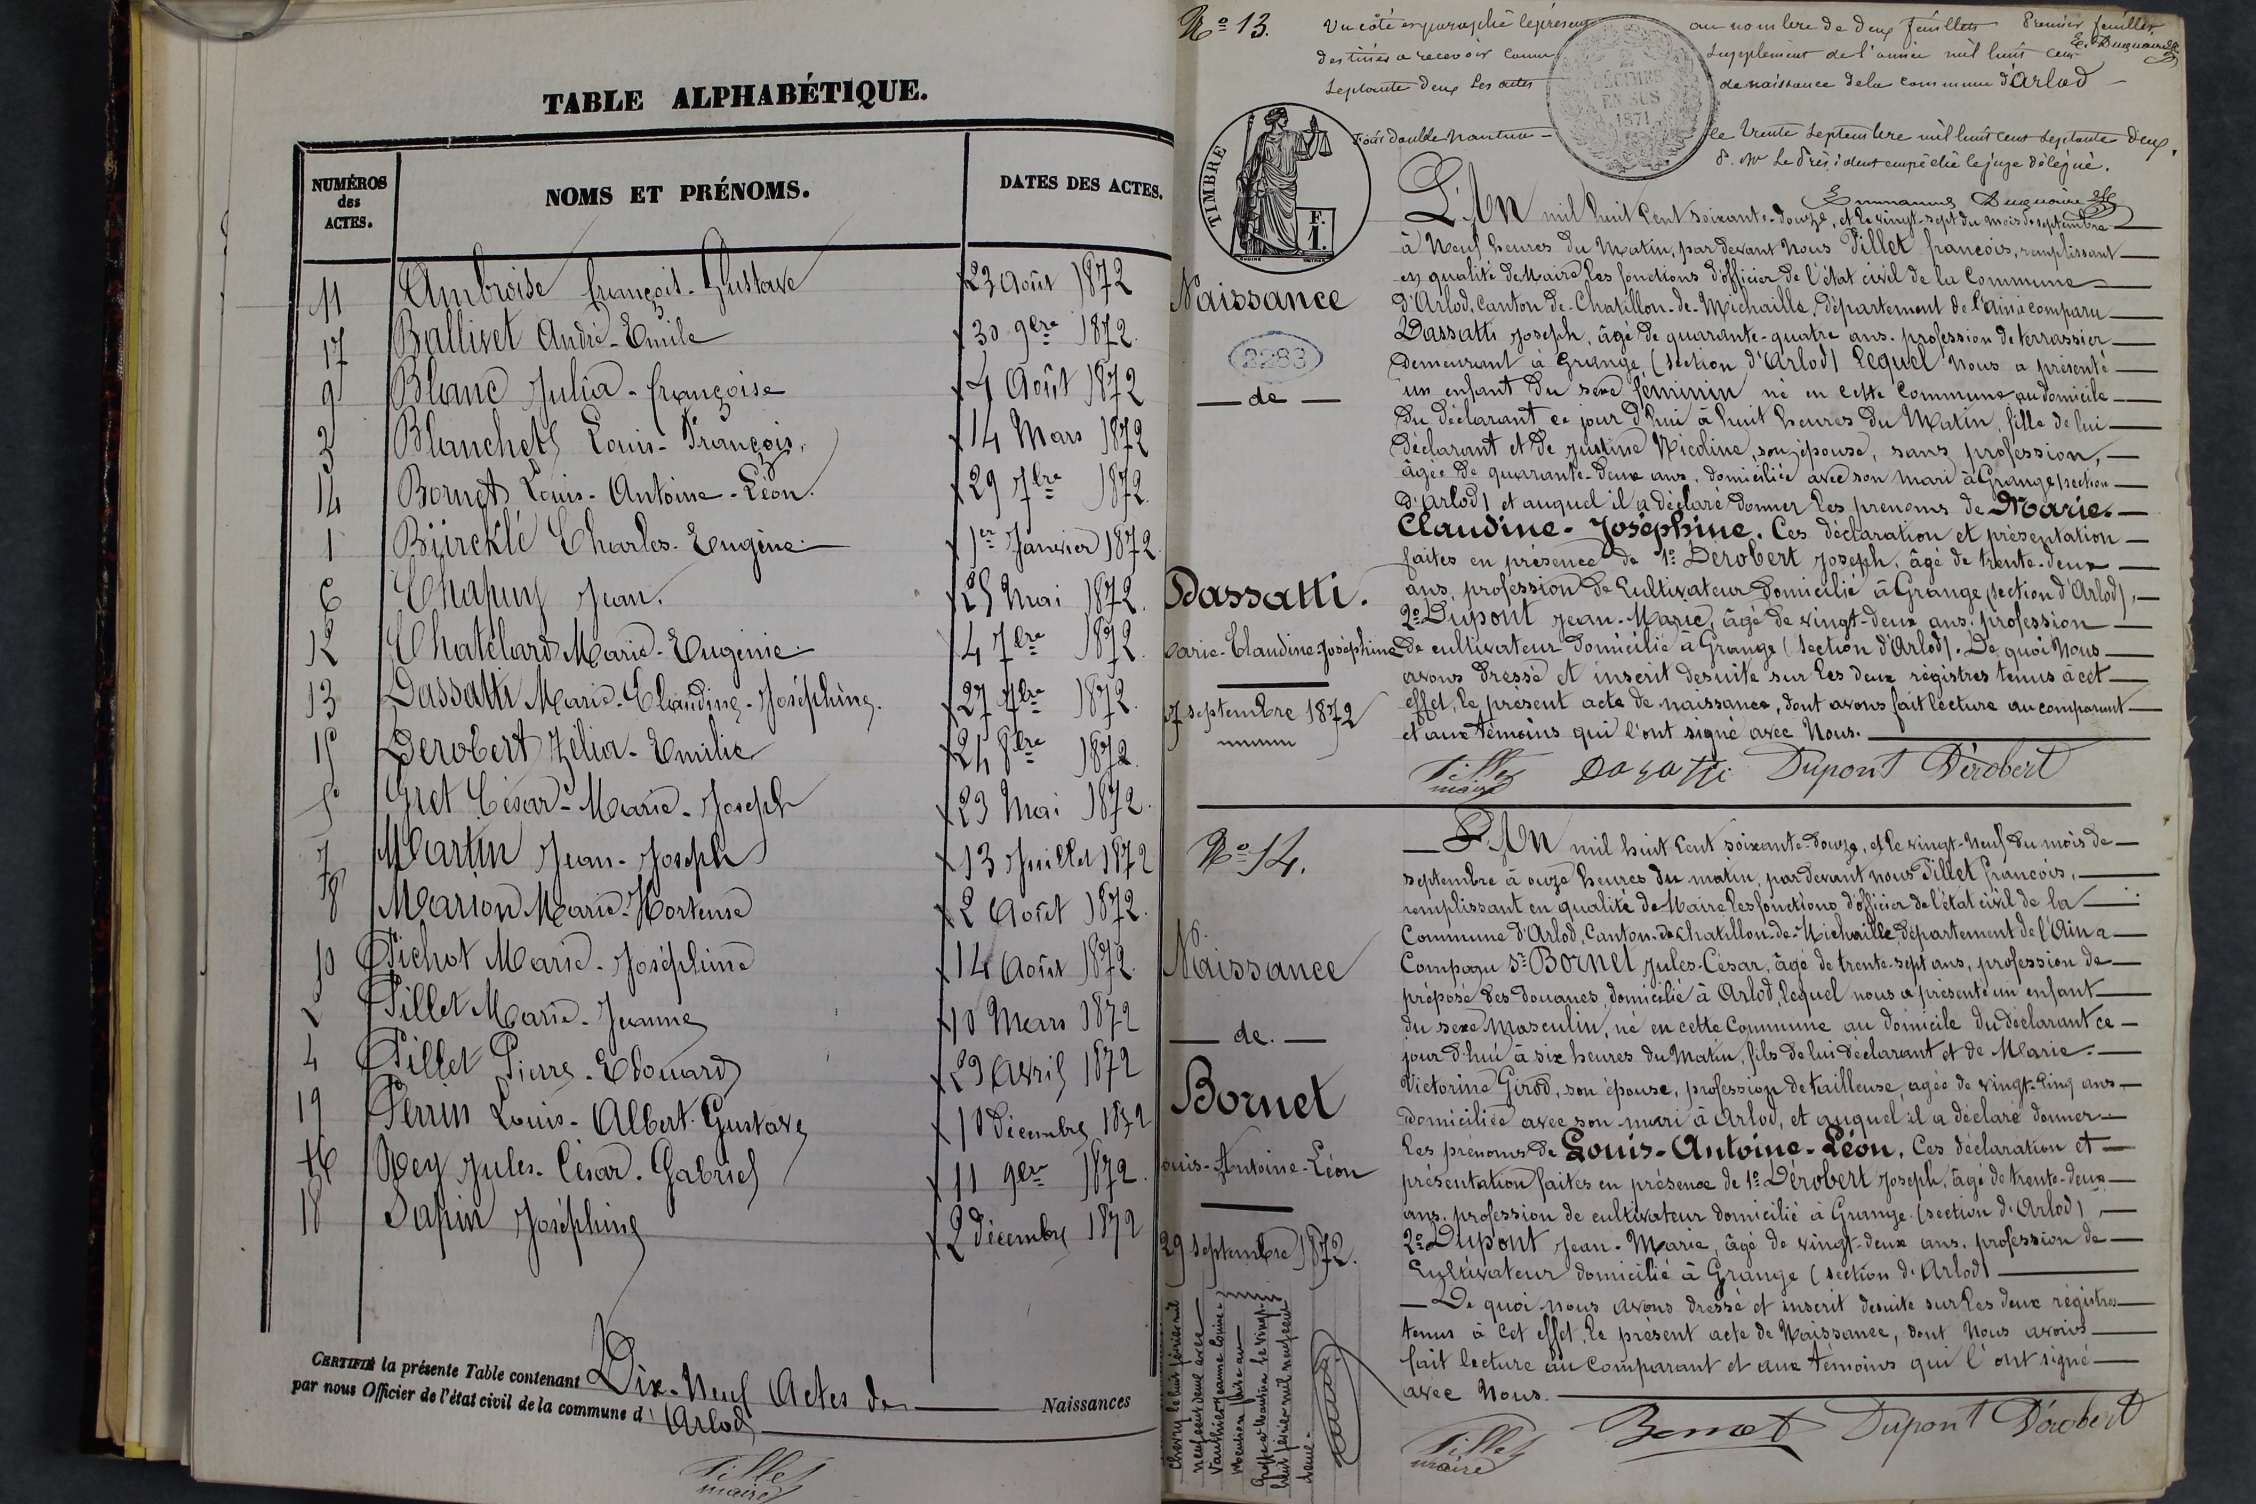 TABLE ALPHABÉTIQUE.
NUMÉROS des ACTES. NOMS ET PRÉNOMS. DATES DES ACTES.
11 Ambroise françois-Gustave 23 Août 1872
17 Ballivet André-Emile 30 9bre 1872.
9 Blanc Julia-françoise 4 Août 1872
3 Blanchet Louis-François. 14 Mars 1872
14 Bornet Louis-Antoine-Léon. 29 7bre 1872.
1 Bürcklé Charles-Eugène 1er Janvier 1872.
6 Chapuy Jean. 25 Mai 1872.
12 Chatelard Marie-Eugénie 4 7bre 1872.
13 Dassatti Marie-Claudine-Joséphine. 27 7bre 1872.
15 Derobert Zélia-Emilie 24 8bre 1872.
5 Gret César-Marie-Joseph 23 Mai 1872.
7 Martin Jean-Joseph 13 Juillet 1872
8 Marion Marie-Hortense 2 Août 1872.
10 Pichot Marie-Joséphine 14 Août 1872.
2 Pillet Marie-Jeanne 10 Mars 1872
4 Pillet Pierre-Edouard 29 Avril 1872
19 Perrin Louis-Albert-Gustave 10 Décembre 1872
16 Rey Jules-César-Gabriel 11 9bre 1872.
18 Sapin Joséphine 2 Décembre 1872
CERTIFIÉ la présente Table contenant Dix-Neuf Actes de Naissances
par nous Officier de l'état civil de la commune d'Arlod
Pillet
maire
No 13.
Vu coté et paraphé le présent au nombre de deux feuillets Premier feuillet.
destinés a recevoir comme supplement de l'année mil huit cent
septante deux les actes de naissance de la commune d'Arlod
Nantua le trente septembre mil huit cent septante deux.
P. Mr Le Président empêché le juge délégué.
2 DÉCIMES EN SUS 1871
TIMBRE
F.
1.
Naissance
2283
de
Dassatti.
Marie-Claudine-Joséphine
27 septembre 1872
L'An mil huit cent soixante-douze, et le vingt-sept du mois de septembre
à Neuf heures du Matin, par devant Nous Pillet françois, remplissant
en qualité de Maire les fonctions d'officier de l'état civil de la Commune
d'Arlod, Canton de-Chatillon-de-Michaille, Département de l'Ain a comparu
Dassatti Joseph, âgé de quarante-quatre ans. profession de terrassier
Demeurant à Grange, (section d'Arlod) lequel Nous a présenté
un enfant du sexe féminin né en cette Commune au domicile
du déclarant ce jour d'hui à huit heures du Matin, fille de lui
déclarant et de Justine Nicoline, son épouse, sans profession,
âgée de quarante-deux ans, domiciliée avec son mari à Grange (section
d'Arlod) et auquel il a déclaré donner les prénoms de Marie-
Claudine-Joséphine. Ces déclaration et présentation
faites en présence de 1º Derobert Joseph, âgé de trente-deux
ans, profession de Cultivateur Domicilié à Grange (section d'Arlod),
2º Dupont Jean-Marie, âgé de vingt-deux ans, profession
de cultivateur domicilié à Grange (section d'Arlod). De quoi Nous
avons dressé et inscrit desuite sur les deux régistres tenus à cet
effet, le présent acte de naissance, dont avons fait lecture au comparant
et aux témoins qui l'ont signé avec Nous.
Pillet maire Dasatti Dupont Dérobert
No 14.
Naissance
de
Bornet
Louis-Antoine-Léon
29 septembre 1872.
L'An mil huit cent soixante-douze, et le vingt-neuf du mois de
septembre à onze heures du matin, par devant nous Pillet françois,
remplissant en qualité de Maire les fonctions d'officier de l'état civil de la
Commune d'Arlod, Canton-de-Chatillon-de-Michaille, département de l'Ain a
Comparu Sr Bornet Jules-César, âgé de trente-sept ans, profession de
préposé des douanes, domicilié à Arlod, lequel nous a présenté un enfant
du sexe Masculin, né en cette Commune au domicile du déclarant ce
jour d'hui à six heures du Matin, fils de lui déclarant et de Marie-
Victorine Girod, son épouse, profession de tailleuse, agée de vingt-cinq ans
domiciliée avec son mari à Arlod, et auquel il a déclaré donner
les prénoms de Louis-Antoine-Léon. Ces déclaration et
présentation faites en présence de 1º Dérobert Joseph, âgé de trente-deux
ans, profession de cultivateur domicilié à Grange (section d'Arlod)
2º Dupont Jean-Marie, âgé de vingt-deux ans, profession de
Cultivateur domicilié à Grange (section d'Arlod)
De quoi nous avons dressé et inscrit desuite sur les deux régistres
tenus à cet effet, le présent acte de Naissance, dont Nous avons
fait lecture au Comparant et aux témoins qui l'ont signé
avec Nous.
Pillet maire Bornet Dupont Dérobert
neuf cent deux avec
Vauthier Jeanne Louise
Mention faite au